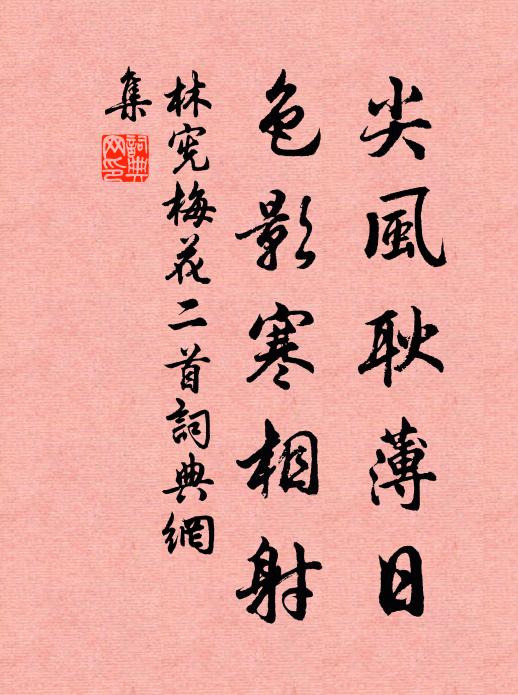 尖風耿薄日
色影寒相射
林宪梅花二首詞典網
集
詞典
网印